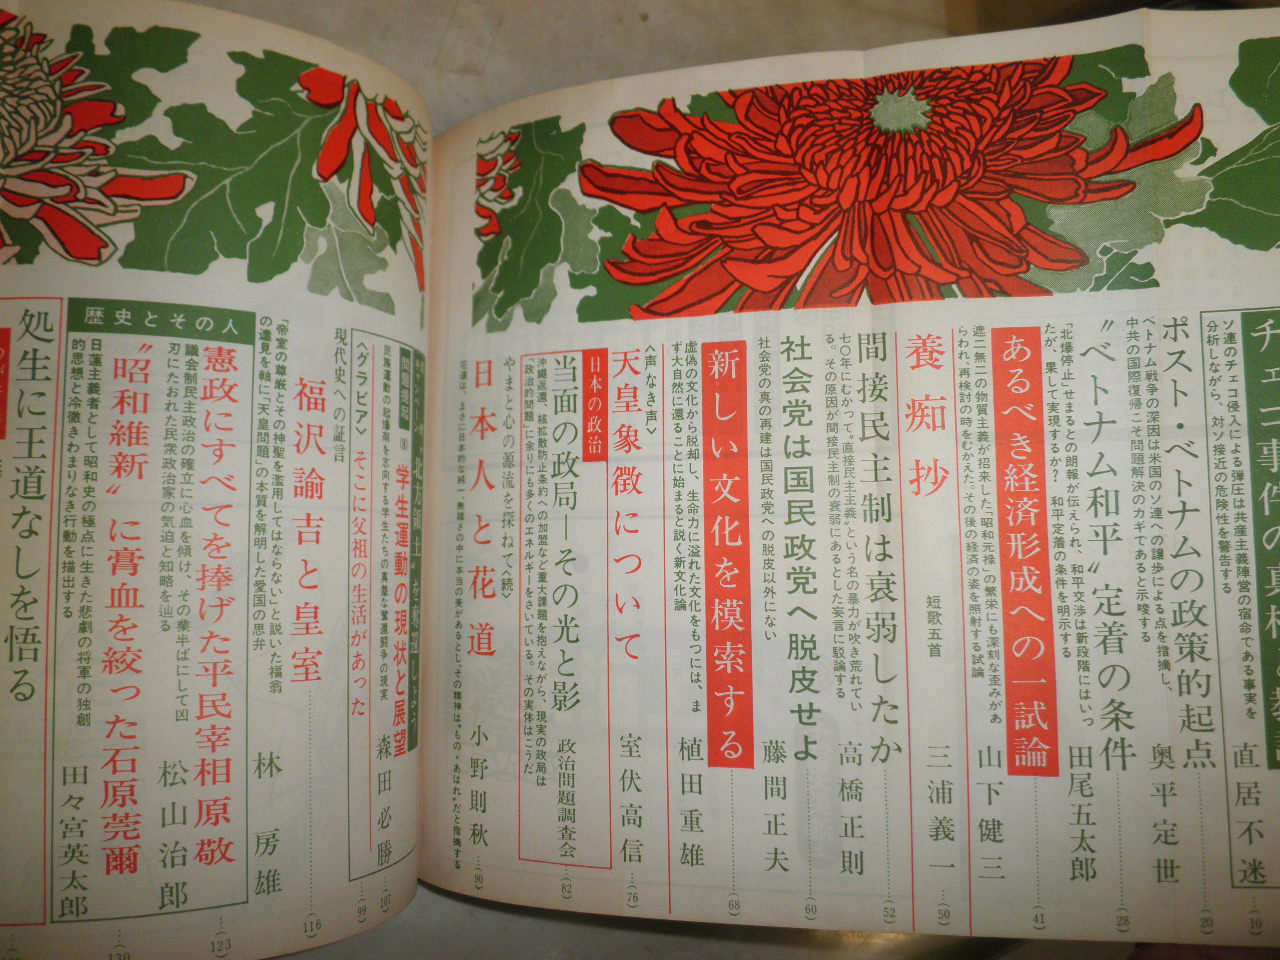 ソ連のチェコ侵入による弾圧は共産主義陣営の宿命である事実を
分析しながら、対ソ接近の危険性を警告する
直居不迷
(10)
ポスト・ベトナムの政策的起点
奥平定世
(20)
ベトナム戦争の深因は米国のソ連への譲歩による点を指摘し、
中共の国際復帰こそ問題解決のカギであると示唆する
〝ベトナム和平〟定着の条件
田尾五太郎
(28)
「北爆停止」せまるとの朗報が伝えられ、和平交渉は新段階にはいっ
たが、果して実現するか？ 和平定着の条件を明示する
あるべき経済形成への一試論
山下健三
(41)
遮二無二の物質主義が招来した「昭和元禄」の繁栄にも深刻な歪みがあ
らわれ、再検討の時をむかえた。その後の経済の姿を照射する試論
養痴抄
短歌五首
三浦義一
(50)
間接民主制は衰弱したか
高橋正則
(52)
七〇年にむかって〝直接民主主義〟という名の暴力が吹き荒れてい
る。その原因が間接民主制の衰弱にあるとした妄言に駁論する
社会党は国民政党へ脱皮せよ
藤間正夫
(60)
社会党の真の再建は国民政党への脱皮以外にない
新しい文化を模索する
植田重雄
(68)
虚偽の文化から脱却し、生命力に溢れた文化をもつには、ま
ず大自然に還ることに始まると説く新文化論
〈声なき声〉
天皇象徴について
室伏高信
(76)
日本の政治
当面の政局―その光と影
政治問題調査会
(82)
沖縄返還、核拡散防止条約への加盟など重大課題を抱えながら、現実の政局は
「政治的問題」に余りにも多くのエネルギーをさいている。その実体はこうだ
やまと心の源流を探ねて〈続〉
日本人と花道
小野則秋
(90)
花道は、まさに日本的な純一、無雑さの中に本当の美があるとし、その精神は〝もの・あはれ〟だと指摘する
問題提起
学生運動の現状と展望
森田必勝
(107)
民族運動の起爆剤を志向する学生たちの真摯な奪還闘争の現実
〈グラビア〉
そこに父祖の生活があった
(99)
現代史への証言
福沢諭吉と皇室
林房雄
(116)
「帝室の尊厳とその神聖を濫用してはならない」と説いた福翁
の遺見を軸に「天皇問題」の本質を解明した愛国の思弁
歴史とその人
憲政にすべてを捧げた平民宰相原敬
松山治郎
(123)
議会制民主政治の確立に心血を傾け、その業半ばにして凶
刃にたおれた民衆政治家の気迫と知略を辿る
〝昭和維新〟に膏血を絞った石原莞爾
田々宮英太郎
(130)
日蓮主義者として昭和史の極点に生きた悲劇の将軍の独創
的思想と冷徹きわまりなき行動を描出する
処生に王道なしを悟る